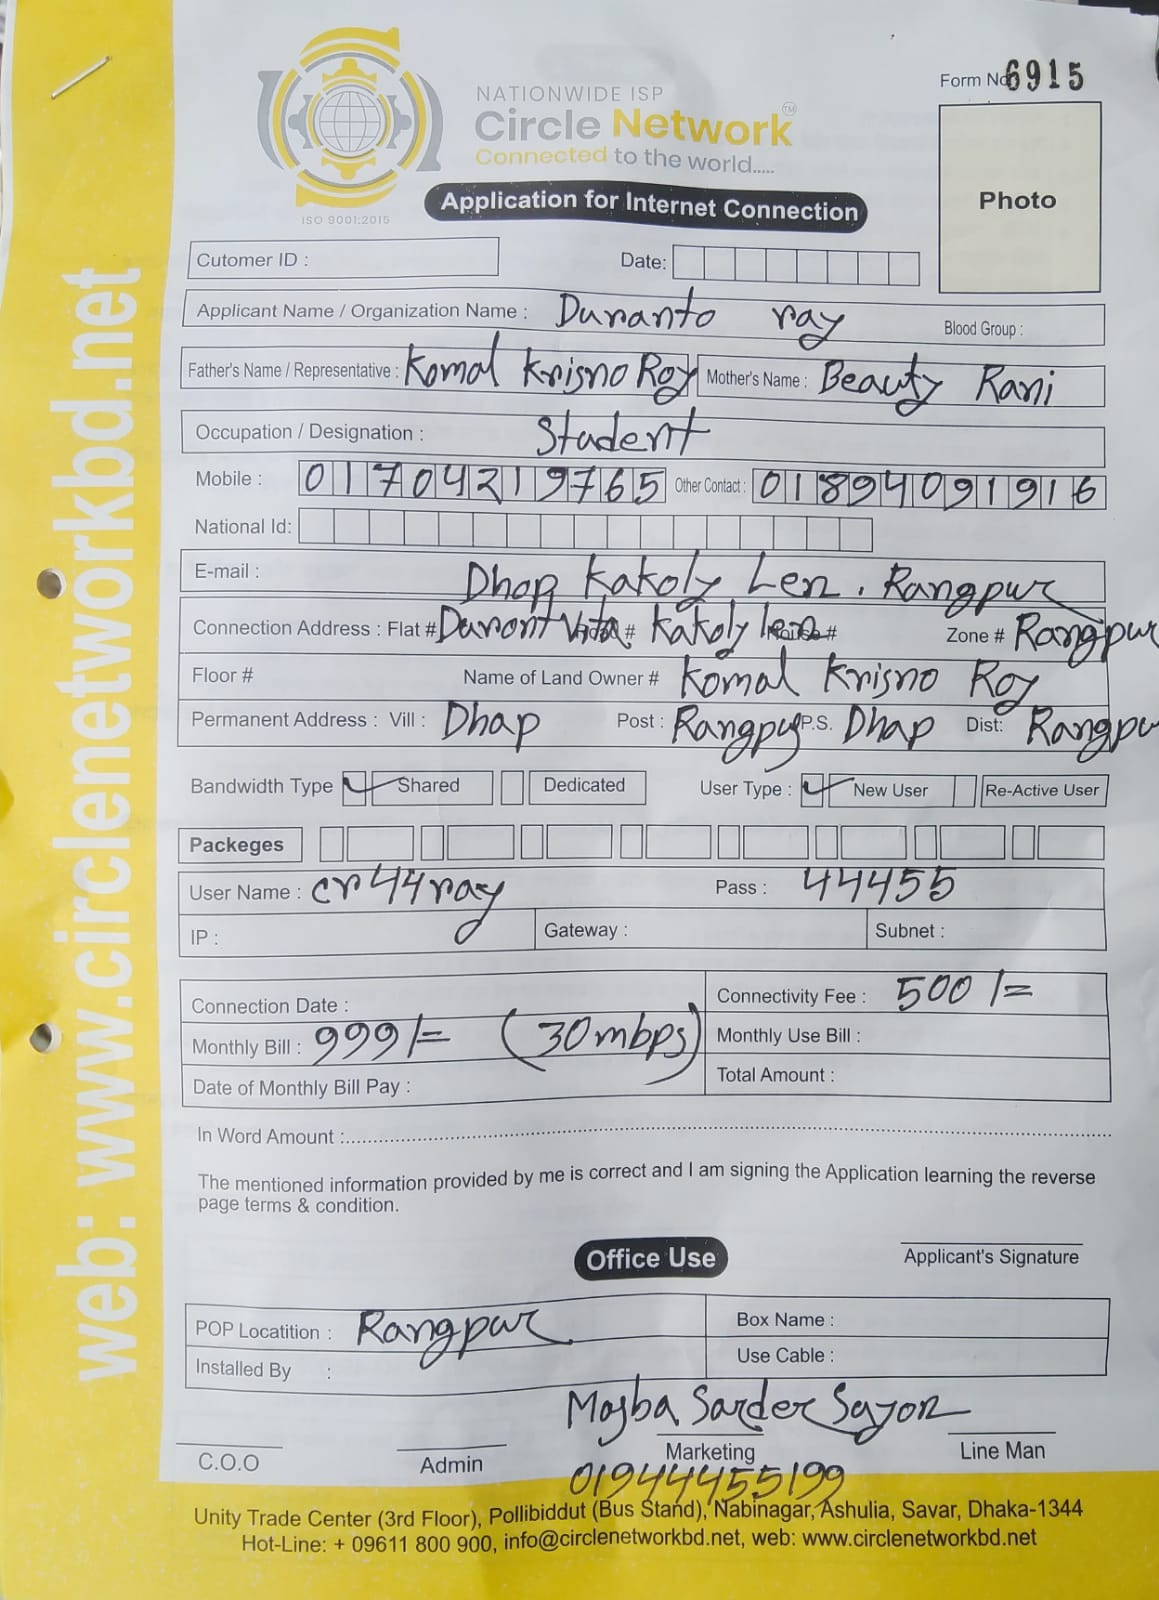 Form No 6915
NATIONWIDE ISP
Circle Network TM
Connected to the world.....
ISO 9001:2015
Application for Internet Connection
Photo
Cutomer ID :
Date:
Applicant Name / Organization Name : Duranto ray Blood Group :
Father's Name / Representative : Komal Krisno Roy Mother's Name : Beauty Rani
Occupation / Designation : Student
Mobile : 01704219765 Other Contact : 01894091916
National Id:
E-mail : Dhap Kakoly Len. Rangpur
Connection Address : Flat # Duront Vita # Kakoly len # Zone # Rangpur
Floor # Name of Land Owner # Komal Krisno Roy
Permanent Address : Vill : Dhap Post : Rangpu P.S. Dhap Dist: Rangpu
Bandwidth Type Shared Dedicated User Type : New User Re-Active User
Packeges
User Name : cr44ray Pass : 44455
IP : Gateway : Subnet :
Connection Date : Connectivity Fee : 500/=
Monthly Bill : 999/= (30mbps) Monthly Use Bill :
Date of Monthly Bill Pay : Total Amount :
In Word Amount :
The mentioned information provided by me is correct and I am signing the Application learning the reverse
page terms & condition.
Applicant's Signature
Office Use
POP Locatition : Rangpur Box Name :
Installed By : Use Cable :
Mojba Sarder Sayon
C.O.O Admin Marketing Line Man
01944455199
Unity Trade Center (3rd Floor), Pollibiddut (Bus Stand), Nabinagar, Ashulia, Savar, Dhaka-1344
Hot-Line: + 09611 800 900, info@circlenetworkbd.net, web: www.circlenetworkbd.net
web: www.circlenetworkbd.net